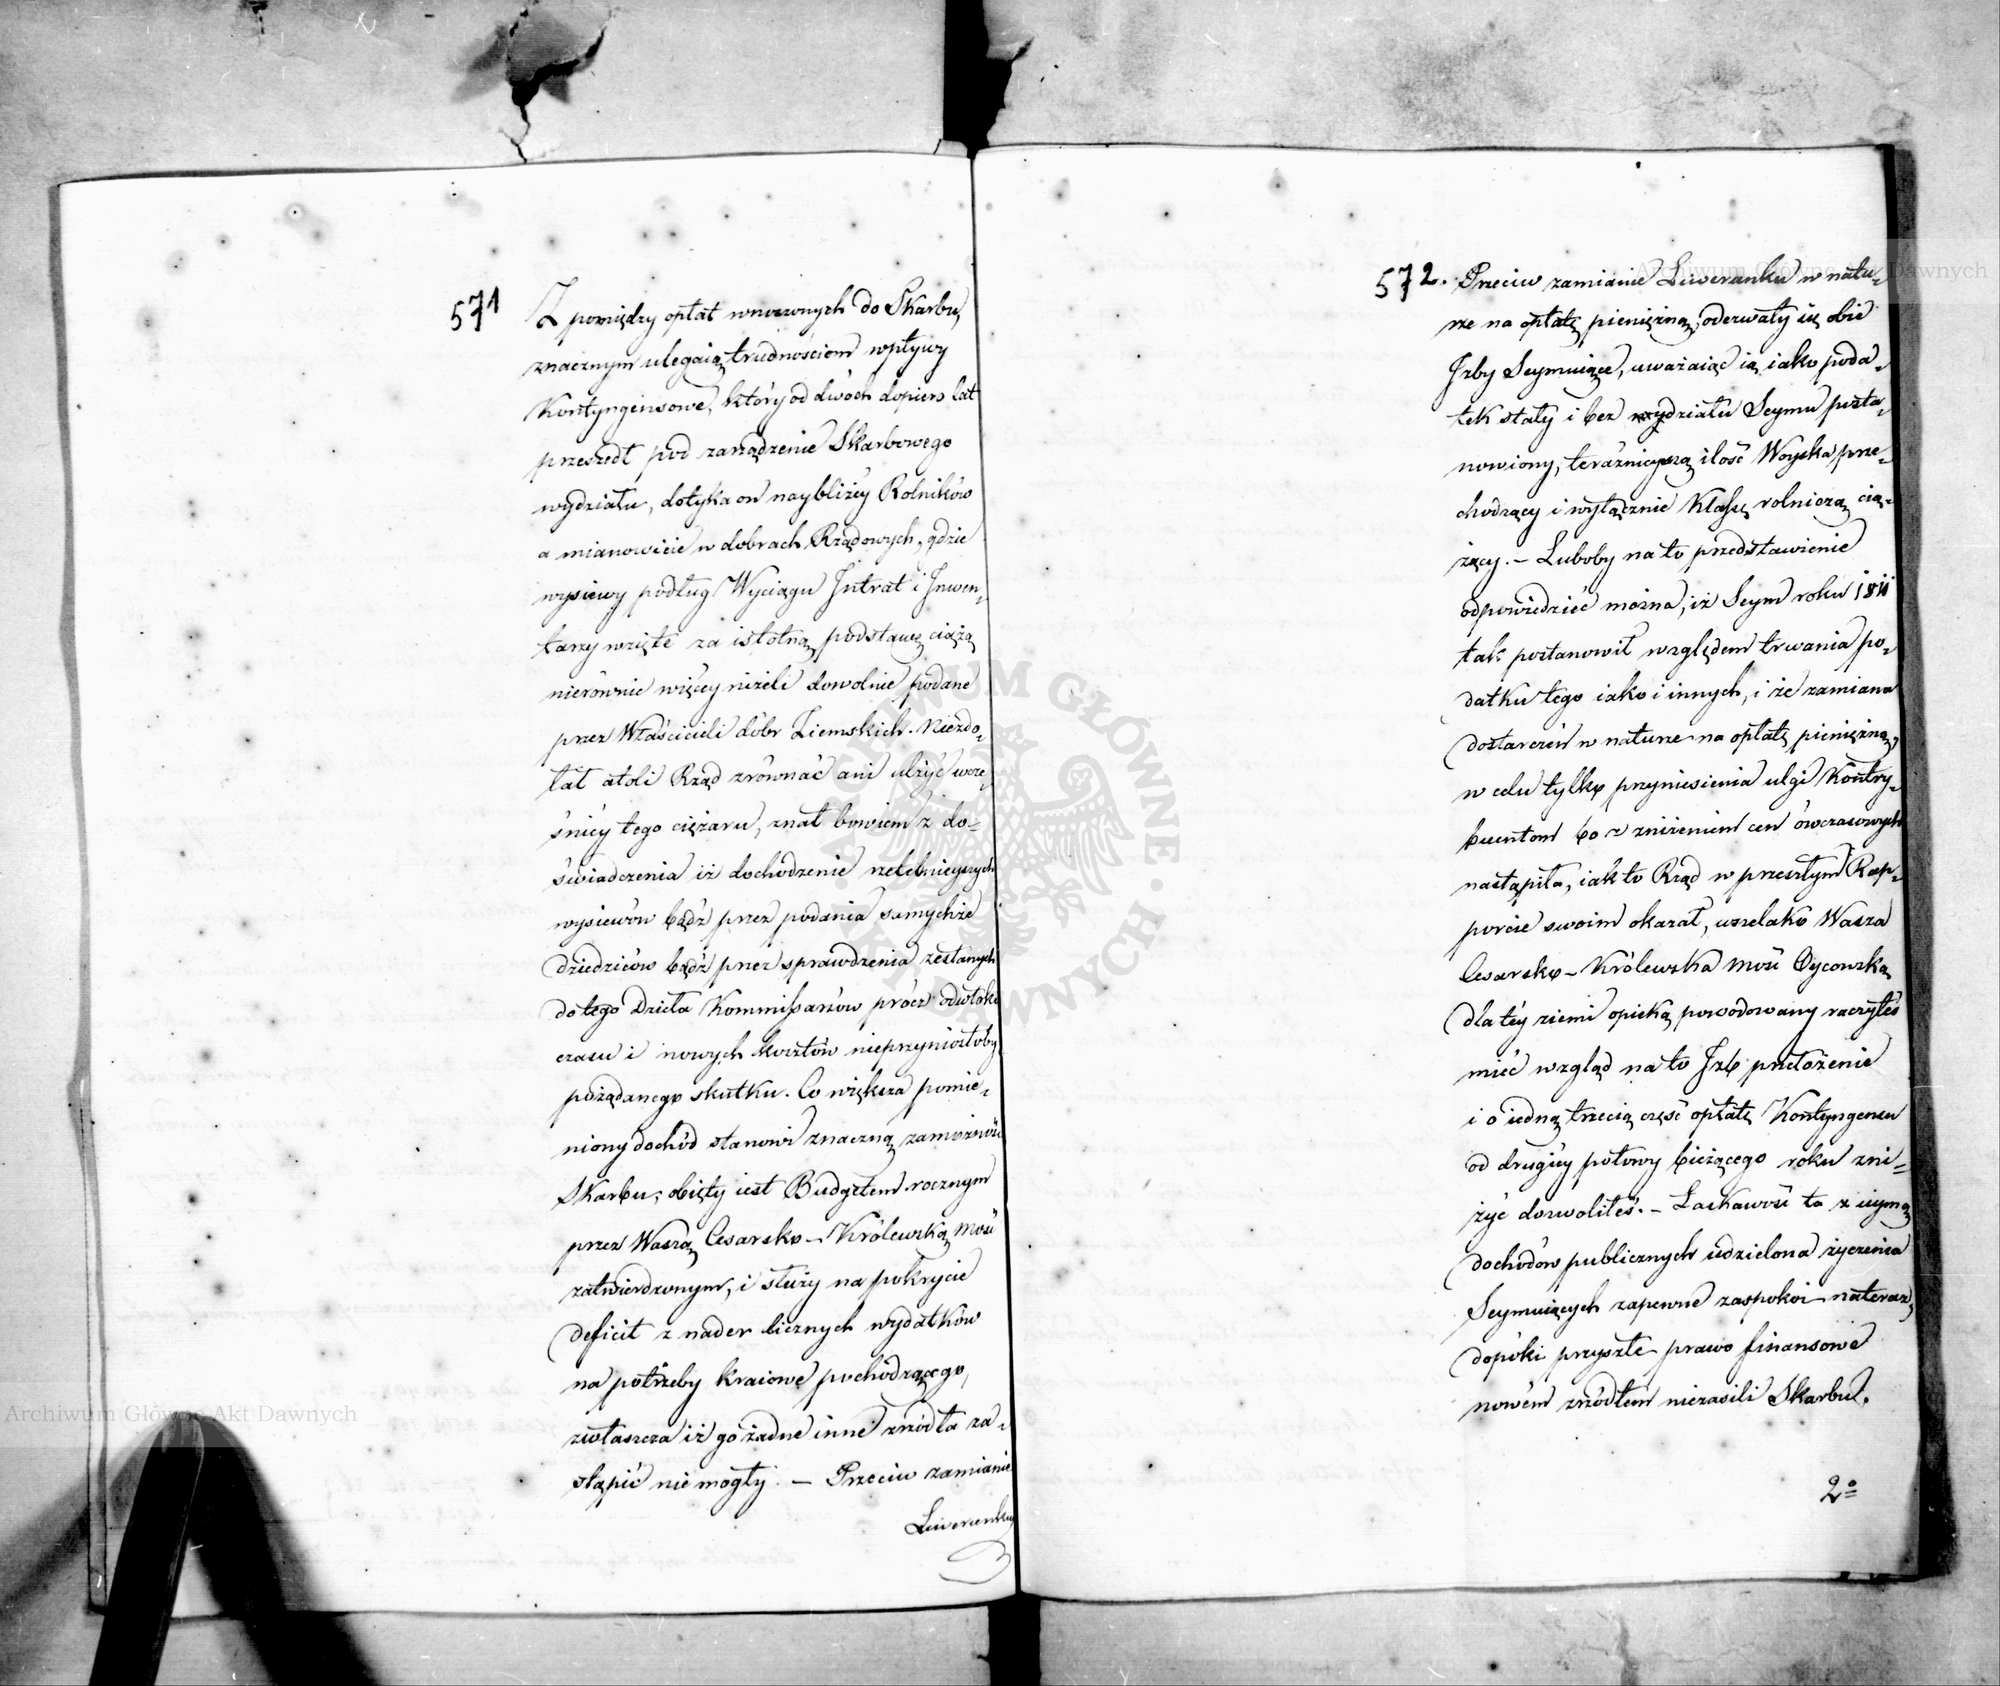 571
Z pomiędzy opłat wnoszonych do Skarbu,
znacznym ulegaią trudnosciom wpływy
Kontyngensowe, który od dwóch dopiero lat
przeszedł pod zarządzenie Skarbowego
wydziału, dotyka on naybliżey Rolników
a mianowicie w dobrach Rządowych, gdzie
wysiewy podług Wyciągu Intrat i Inwen„
tarzy wzięte za istotną podstawę ciążą
nierównie więcey niżeli dowolnie podane
przez Właścicieli dóbr Ziemskich. Niezdo„
łał atoli Rząd zrównać ani ulżyć wcze„
śniey tego ciężaru, znał bowiem z do„
świadczenia iż dochodzenie rzetelnieyszych
wysiewów bądź przez podania samychże
dziedziców bądź przez sprawdzenia zesłanych
do tego Dzieła Kommissarzów prócz odwłoki
czasu i nowych kosztów nieprzyniosłoby
pożądanego skutku. Co większa pomie„
niony dochód stanowi znaczną zamożność
Skarbu, obięty iest Budgetem rocznym
przez Waszą Cesarsko – Królewską Mość
zatwierdzonym, i służy na pokrycie
deficit z nader licznych wydatków
na potrzeby kraiowe pochodzącego,
zwłaszcza iż go żadne inne zrzódła za„
stąpić nie mogły. – Przeciw zamianie
Liwerunku
572. Przeciw zamianie Liwerunku w natu„
rze na opłatę pieniężną, oderwały się obie
Izby Seymuiące, uważaiąc ią iako poda„
tek stały i bez wydziału Seymu posta„
nowiony, teraźnieyszą ilość Woyska prze„
chodzący i wyłącznie Klassę rolniczą cią„
żący. – Luboby na to przedstawienie
odpowiedzieć można, iż Seym roku 1811
tak postanowił względem trwania po„
datku tego iako i innych, i że zamiana
dostarczeń w naturze na opłatę pieniężną,
w celu tylko przyniesienia ulgi Kontry„
buentom bo z zniżeniem cen ówczasowych
nastąpiła, iak to Rząd w przeszłym Rap„
porcie swoim okazał, wszelako Wasza
Cesarsko – Królewska Mość Oycowską
dla tey ziemi opieką powodowany raczyłeś
mieć wzgląd na to Izb przełożenie
i o iedną trzecią część opłatę Kontyngensu
od drugiey połowy bieżącego roku zni„
żyć dozwoliłeś. – Łaskawość ta z uymą
dochodów publicznych udzielona życzenia
Seymuiących zapewne zaspokoi nateraz,
dopóki przyszłe prawo finansowe
nowém zrzódłem niezasili Skarbu.
2º
Archiwum Główne Akt Dawnych